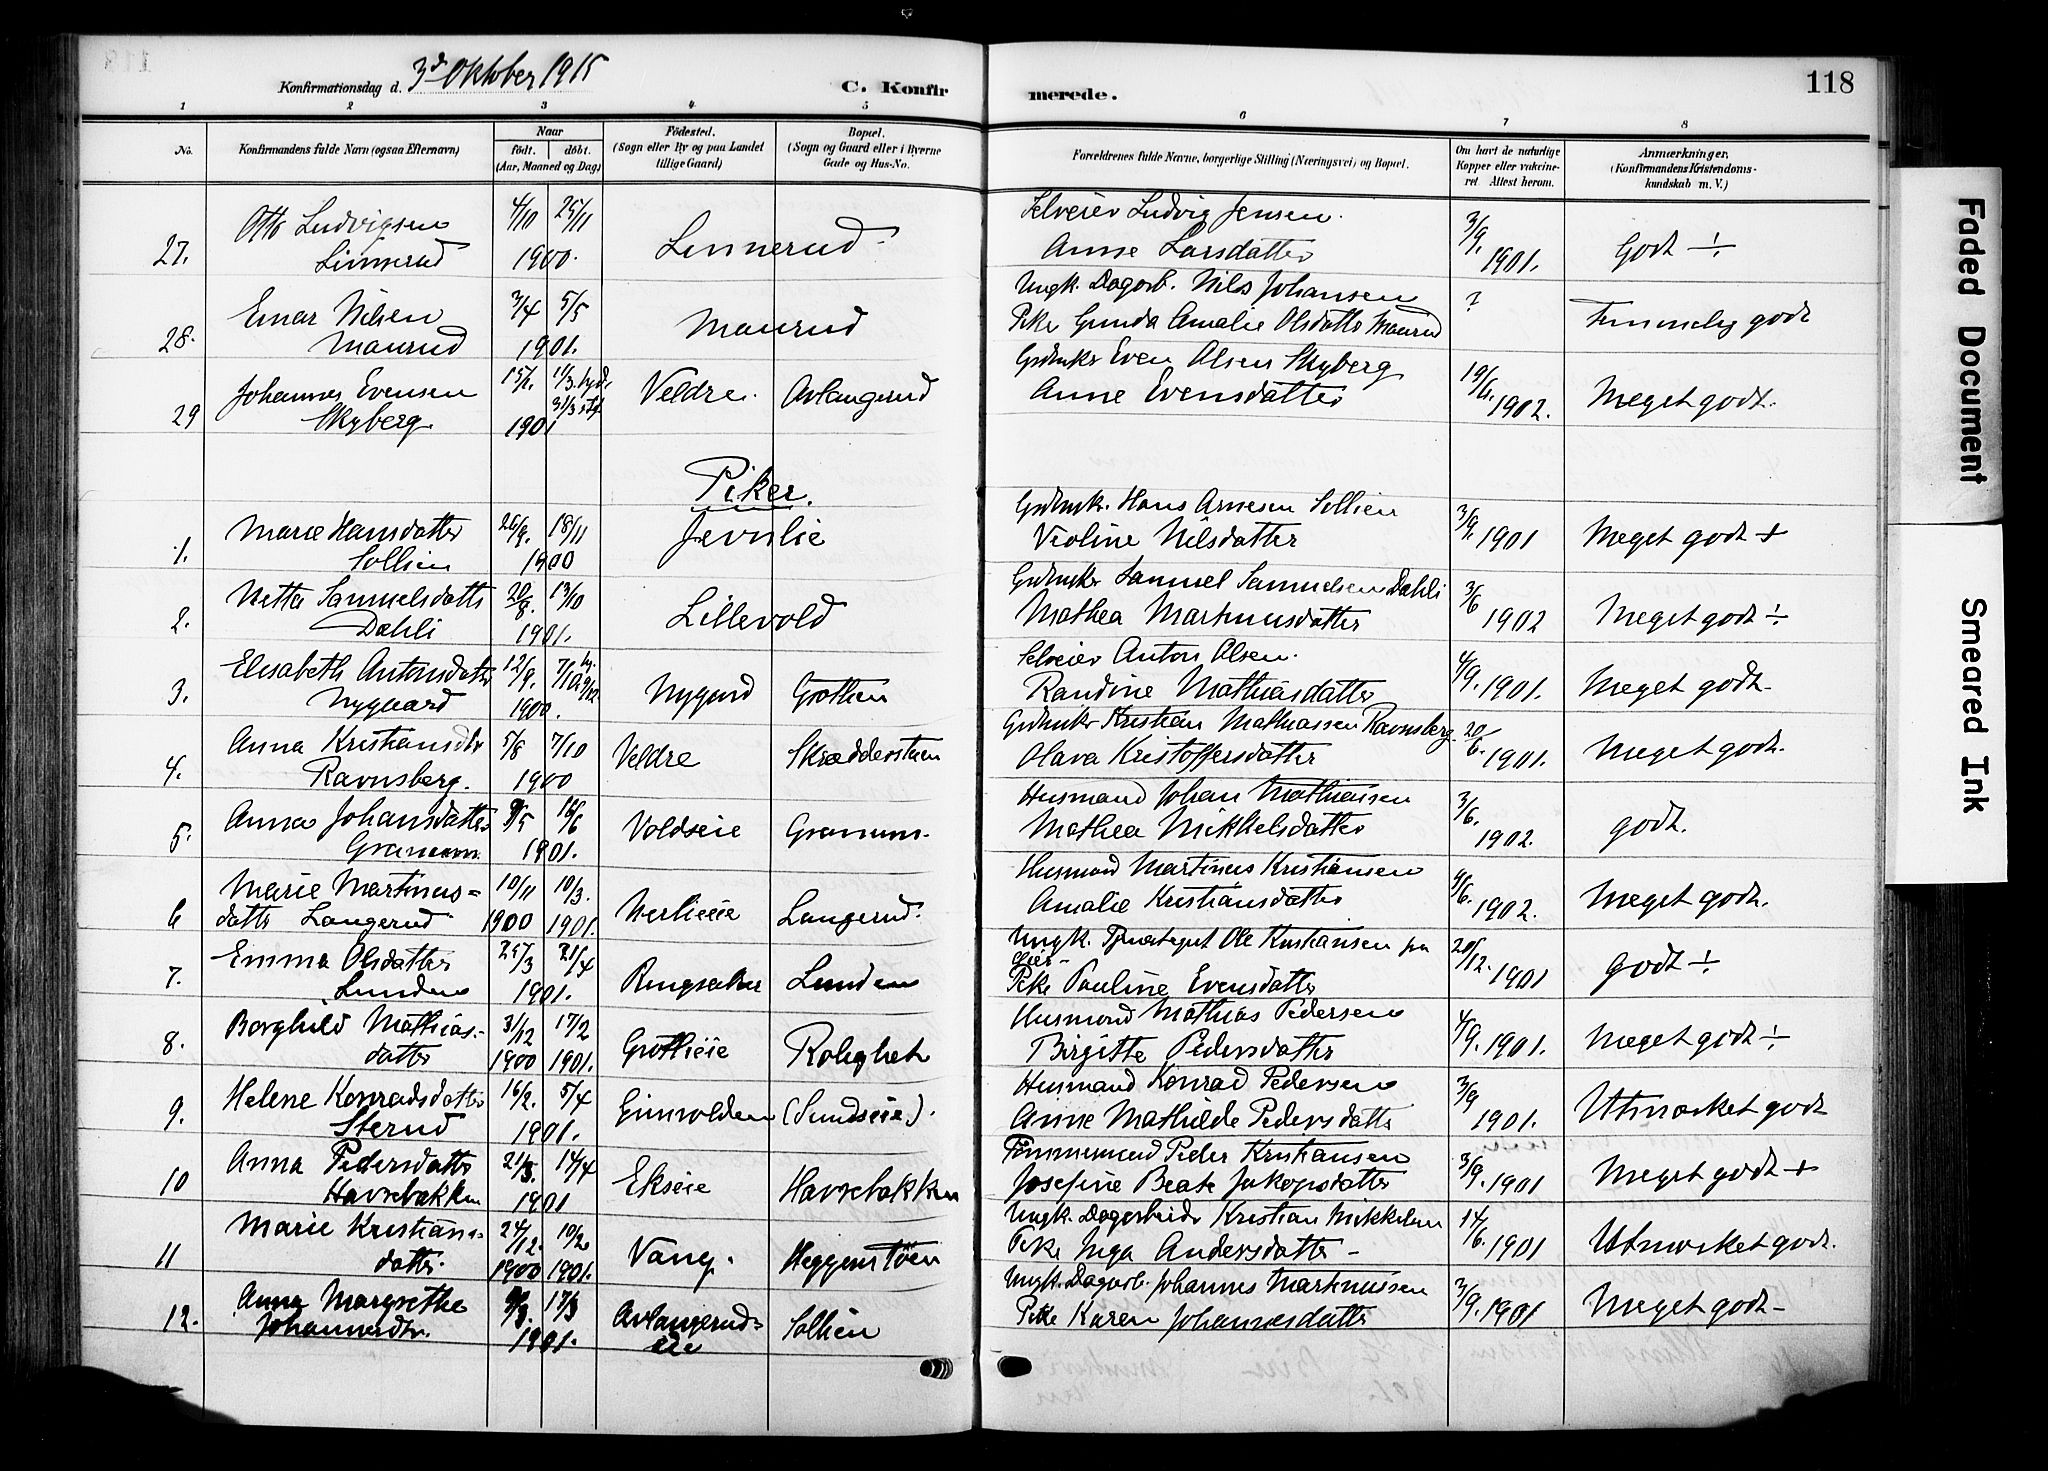 118
Konfirmationsdag d. 3d Oktober 1915
C. Konfirmerede.
1 2 3 4 5 6 7 8
No.
Konfirmandens fulde Navn (ogsaa Efternavn)
Naar
födt. döbt.
(Aar, Maaned og Dag)
Födested.
(Sogn eller By og paa Landet
tillige Gaard)
Bopæl.
(Sogn og Gaard eller i Byerne
Gade og Hus-No.
Forældrenes fulde Navne, borgerlige Stilling (Næringsvei) og Bopæl.
Om havt de naturlige
Kopper eller vakcine-
ret Attest herom.
Anmærkninger.
(Konfirmandens Kristendoms-
kundskab m. V.)
27. Otto Ludvigsen Linnerud 4/10 25/11 1900. Linnerud Selveier Ludvig Jensen.
Anne Larsdatter 3/9. 1901. Godt ÷
28. Einar Nilsen Maurud 3/4 5/5 1901. Maurud Ungk. Dagarb. Nils Johansen
Pike Gunda Amalie Olsdatter Maurud ? Temmelig godt
29 Johannes Evensen Skyberg. 1901 Veldre. Avlangerud Grdbruker Even Olsen Skyberg
Anne Evensdatter 19/6. 1902. Meget godt.
Piker.
1. Marie Hansdatter Sollien 26/9. 18/11 1900 Jevnlie Grdbruk. Hans Arnesen Sollien
Violine Nilsdatter 3/9. 1901 Meget godt +
2. Netta Samuelsdatter Dahli 20/8. 13/10 1901. Lillevold Grdbruker Samuel Samuelsen Dahli
Mathea Martinusdatter 3/6 1902 Meget godt ÷
3. Elisabeth Antonsdatter Nygaard 12/9. 1900. Nygard Grotten Selveier Anton Olsen.
Randine Mathiasdatter 4/9. 1901. Meget godt
4. Anna Kristiansdtr Ravnsberg. 5/8 7/10 1900 Veldre Skrædderstuen Grdbruker Kristian Mathiassen Ravnsberg.
Olava Kristoffersdatter 20/6. 1901. Meget godt.
5. Anna Johansdatter Granum 16/6 1901. Voldseie Granum. Husmand Johan Mathiasen
Mathea Mikkelsdatter 3/6. 1902. godt.
6 Marie Martinus=
datter Langerud 10/11 1900 10/3. 1901. Nerlieeie Langerud. Husmand Martinus Kristiansen
Amalie Kristiansdatter 4/6. 1902. Meget godt.
7. Emma Olsdatter Lunden 25/3 21/4 1901. Ringsaker Lunden Ungk. Tjenestegut Ole Kristiansen pa
Pike Pauline Evensdatter 20/12. 1901 godt ÷
8. Borghild Mathias-
datter 31/12 1900 17/2 1901. Grotlieie Rolighet Husmand Mathias Pedersen
Birgitte Pedersdatter 4/9. 1901. Meget godt ÷
9. Helene Konradsdatter Sterud 16/2. 5/4 1901. Einvolden (Sundseie). Husmand Konrad Pedersen
Anne Mathilde Pedersdatter 3/9 1901. Utmærket godt
10 Anna Pedersdatter Havrebakken 21/3. 14/4 1901 Ekseie Havrebakken Tømmermand Peder Kristiansen
Josefine Beate Jakopsdatter 3/9. 1901 Meget godt +
11 Marie Kristians-
datter. 24/12. 1900 10/2 1901. Vang. Heggenstøen Ungk. Dagarbeider Kristian Mikkelsen
Pike Inga Andersdatter - 14/6. 1901 Utmærket godt.
12. Anna Margrethe
Johannesdtr. 17/3 1901. Avlangerud=
eie Sollien Ungk. Dagarb. Johannes Martinusen
Pike Karen Johannesdatter 3/9. 1901 Meget godt -
Faded Document
Smeared Ink